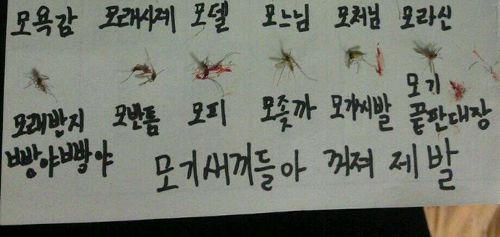 모욕감 모래시계 모델 모느님 모처님 모라신
모래반지 모반톰 모피 모좆까 모가씨발 모기
빵야빵야 끝판대장
모기새끼들아 꺼져 제발